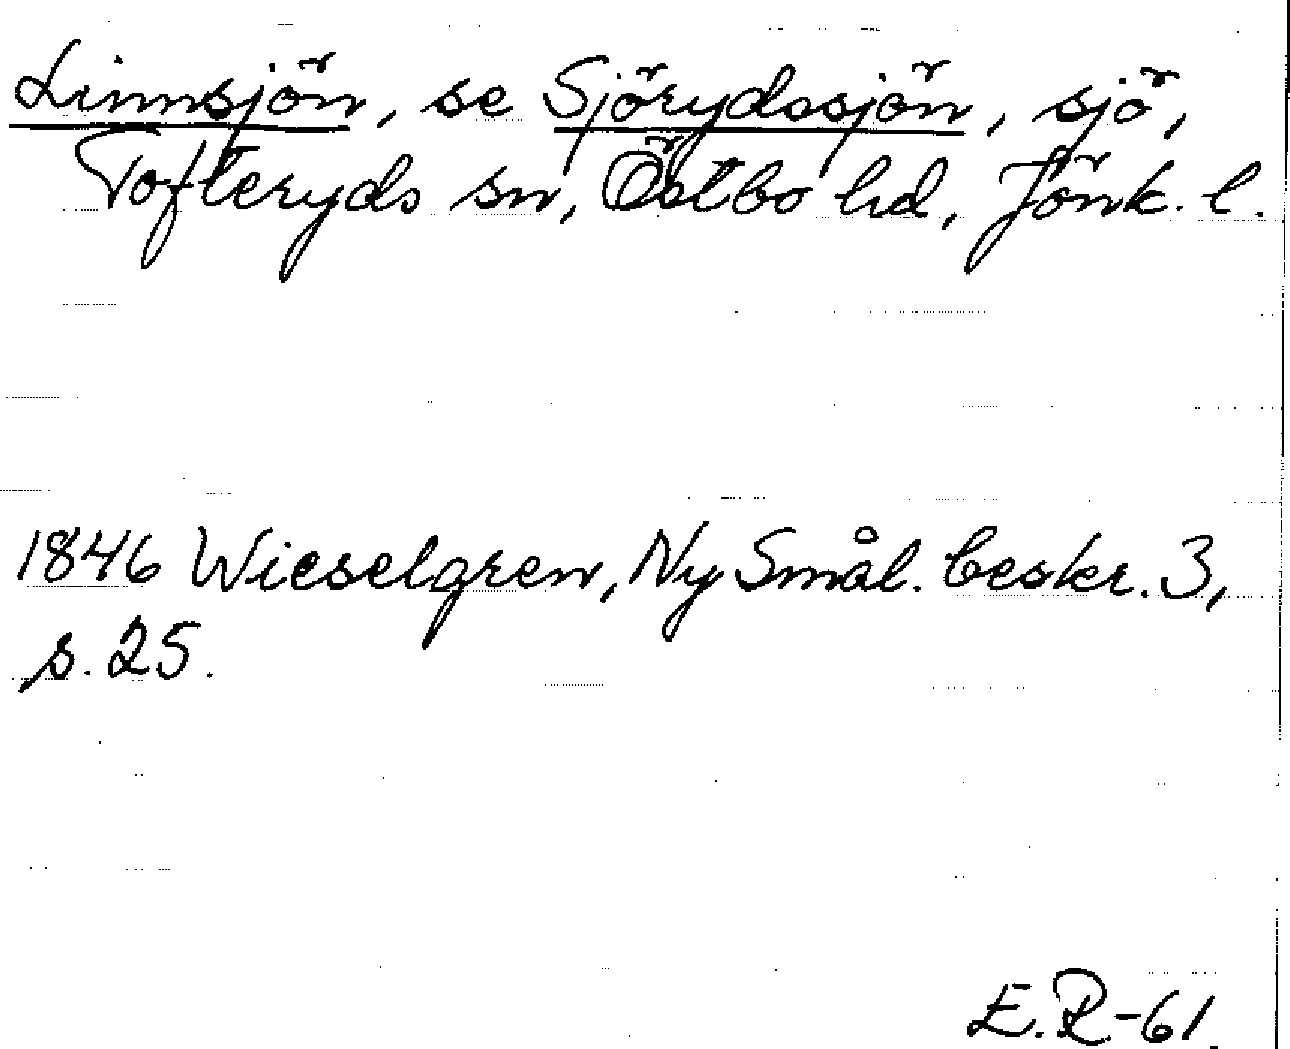 Linnsjön, se Sjörydssjön, sjö,
Tofteryds sn, Östbo hd, Jönk. l.
1846 Wieselgren, Ny Smål. beskr. 3,
s. 25.
E.R-61.